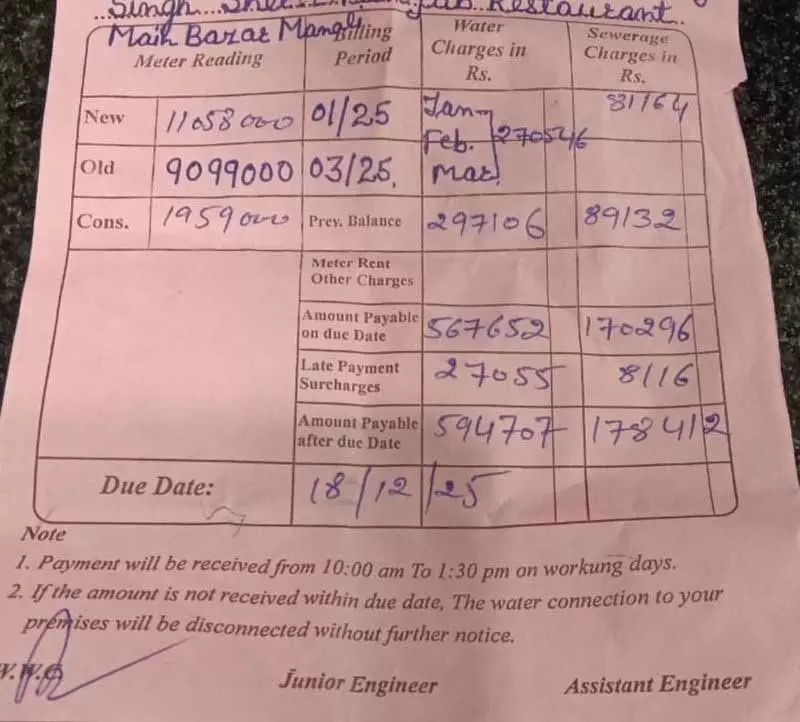 Singh Restaurant
Main Bazar Mangl
Meter Reading Billing Period Water Charges in Rs. Sewerage Charges in Rs.
New 11058000 01/25 Jan 81164
Feb. 270546
Old 9099000 03/25. Mar
Cons. 1959000 Prev. Balance 297106 89132
Meter Rent
Other Charges
Amount Payable on due Date 567652 170296
Late Payment Surcharges 27055 8116
Amount Payable after due Date 594707 178412
Due Date: 18/12/25
Note
1. Payment will be received from 10:00 am To 1:30 pm on workung days.
2. If the amount is not received within due date, The water connection to your
premises will be disconnected without further notice.
Junior Engineer Assistant Engineer